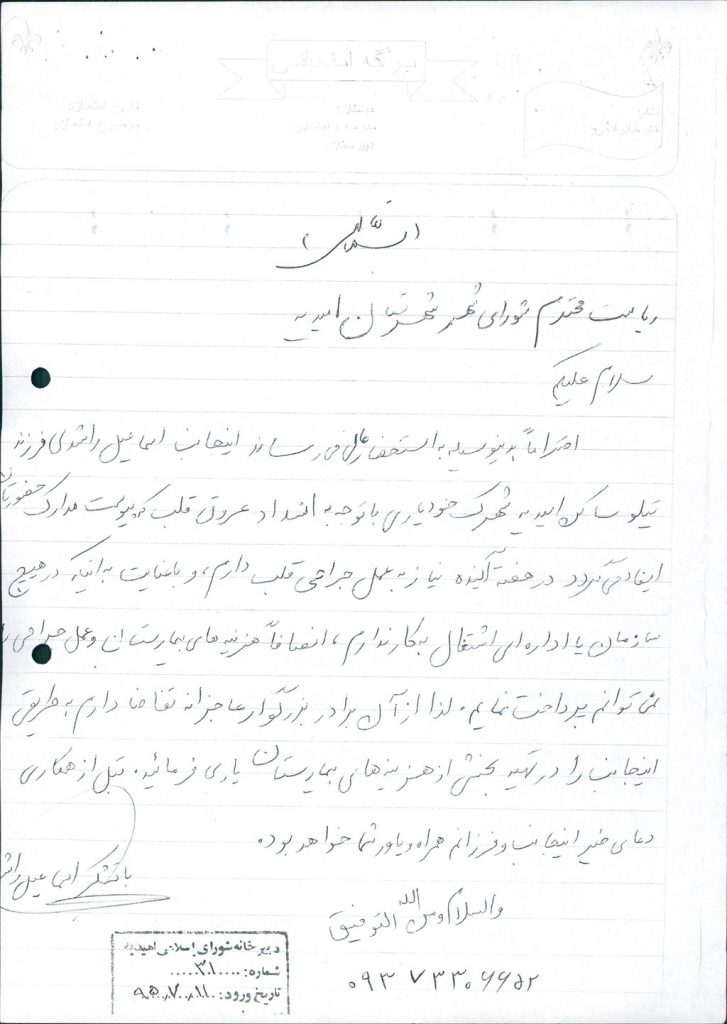 برگه امتحانی
نام:
نام خانوادگی:
دبستان:
مدرسه راهنمایی:
دبیرستان:
تاریخ امتحان:
موضوع امتحان:
(بسمه تعالی)
ریاست محترم شورای شهر شهرستان امیدیه
سلام علیکم
احتراماً بدینوسیله به استحضار عالی می رساند اینجانب اسماعیل راشدی فرزند
تیلو ساکن امیدیه شهرک خودیاری با توجه به انسداد عروق قلب که پیوست مدارک حضورتان
ایفاد می گردد در هفته آینده نیاز به عمل جراحی قلب دارم، و با عنایت به اینکه در هیچ
سازمان یا اداره ای اشتغال به کار ندارم، انصافاً هزینه های بیمارستان و عمل جراحی را
نمی توانم پرداخت نمایم. لذا از آن برادر بزرگوار عاجزانه تقاضا دارم به طریقی
اینجانب را در تهیه بخشی از هزینه های بیمارستان یاری فرمائید. قبل از همکاری
دعای خیر اینجانب و فرزندانم همراه و یاور شما خواهد بود.
با تشکر اسماعیل
والسلام و من الله التوفیق
۰۹۳۷۳۳۰۶۶۵۲
دبیرخانه شورای اسلامی امیدیه
شماره: ۳۱۰
تاریخ ورود: ۹۵/۷/۱۱